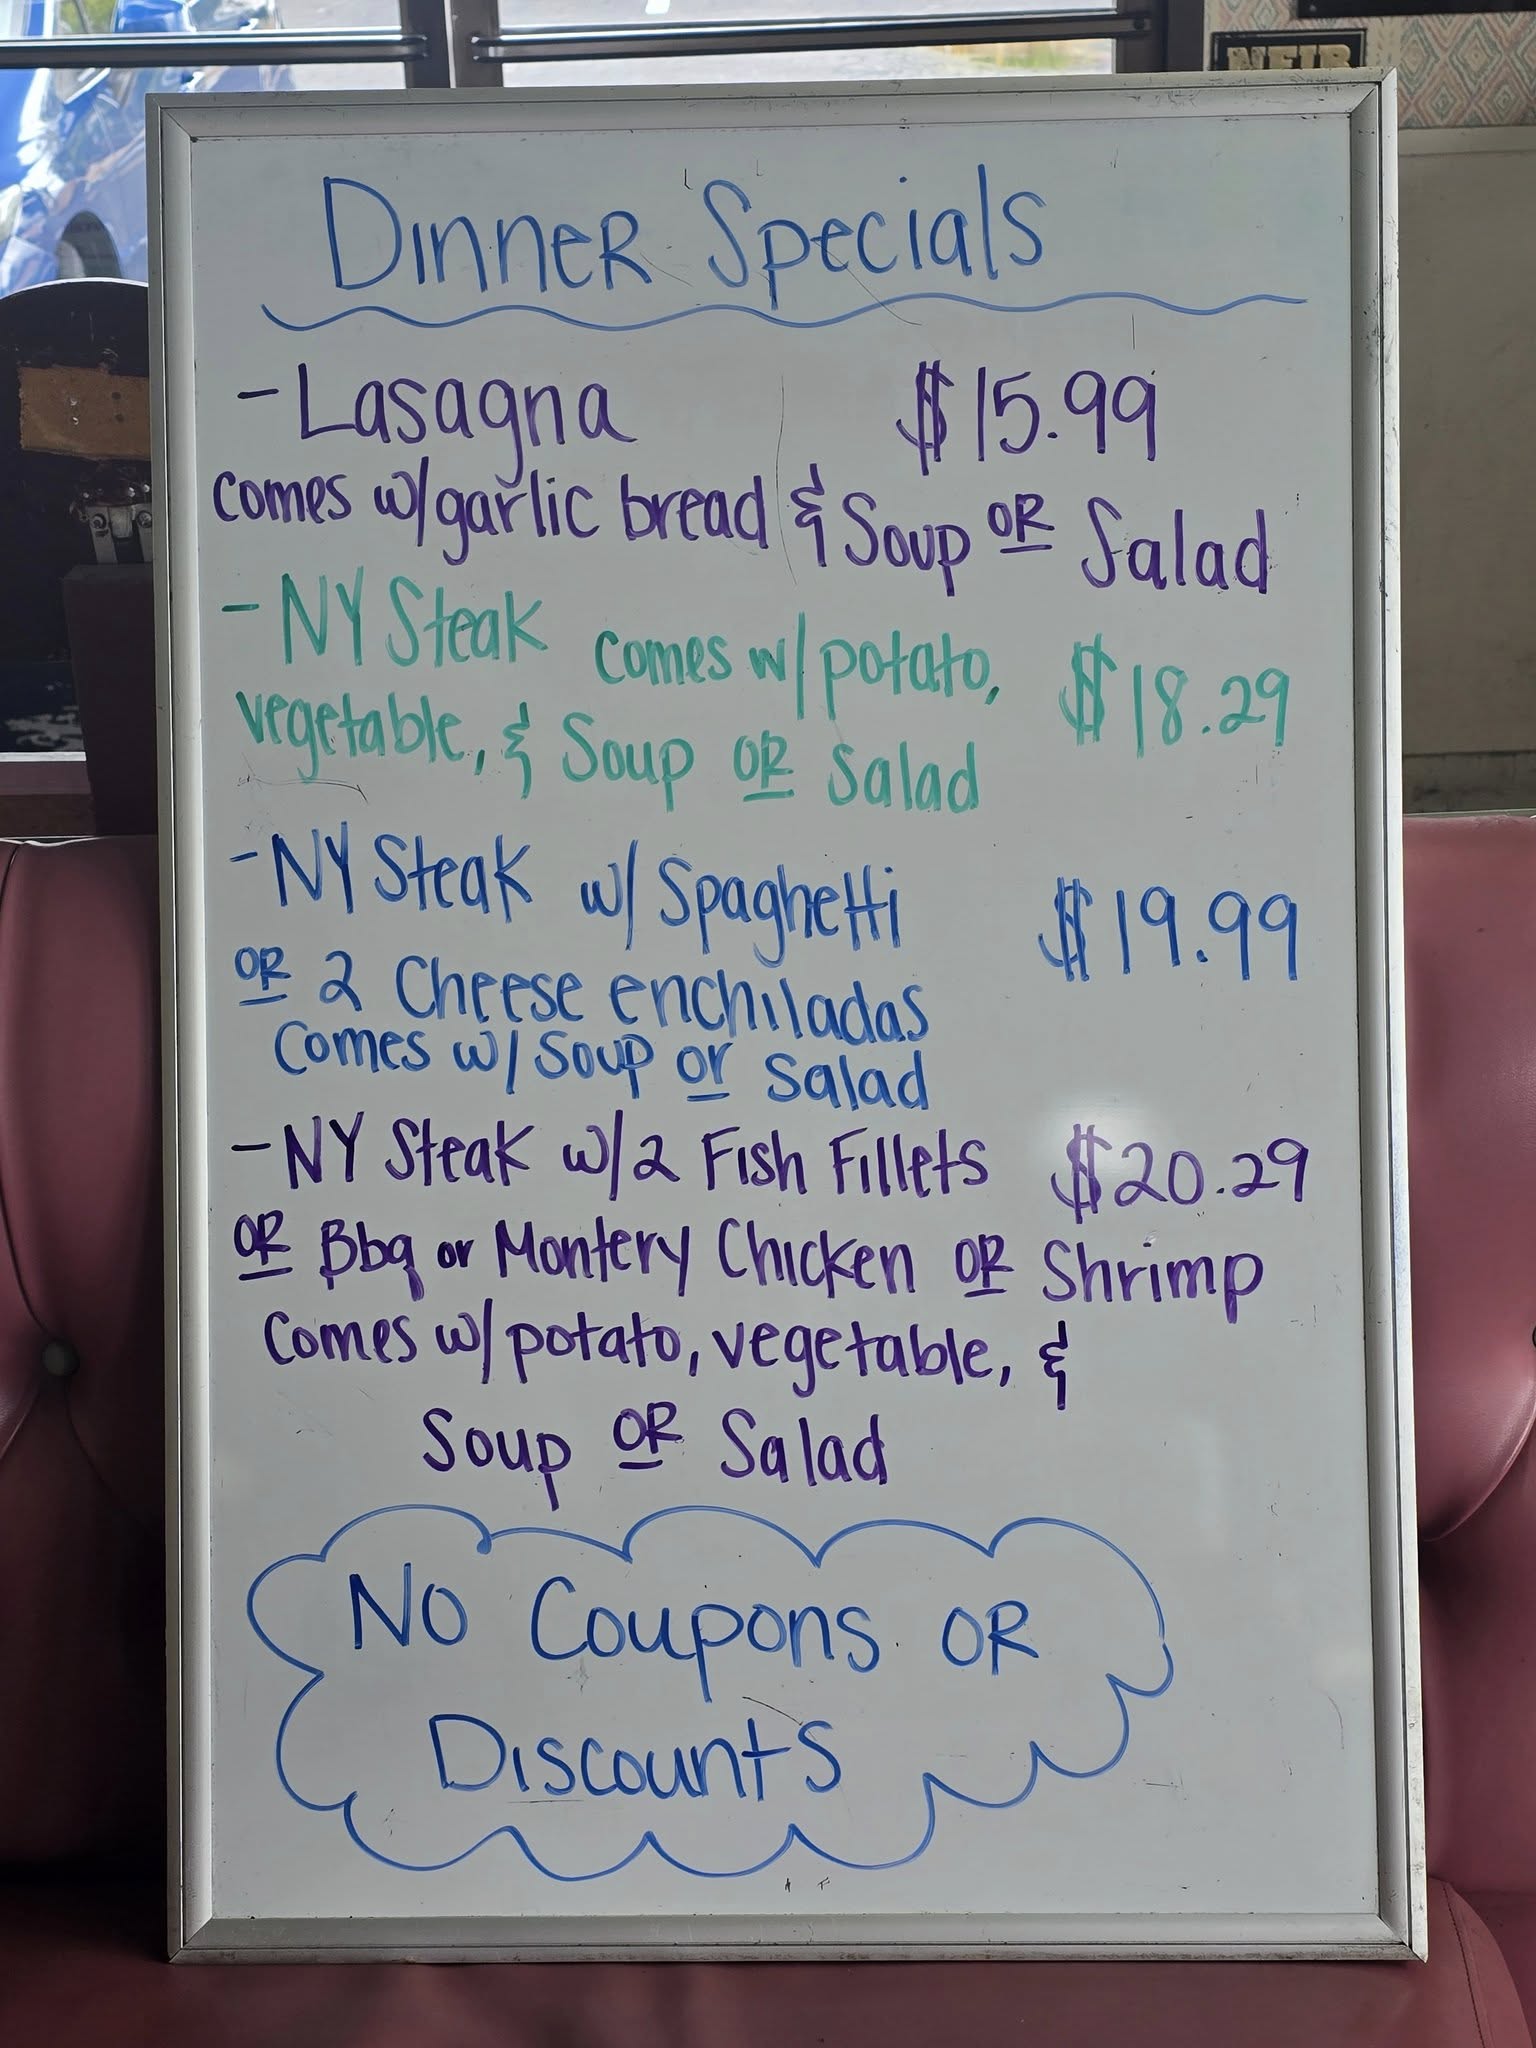 NEIB
Dinner Specials
- Lasagna $15.99
comes w/garlic bread & Soup OR Salad
- NY Steak comes w/potato, $18.29
vegetable, & Soup OR Salad
- NY Steak w/ Spaghetti $19.99
OR 2 Cheese enchiladas
Comes w/ Soup or Salad
- NY Steak w/2 Fish Fillets $20.29
OR Bbq or Montery Chicken OR Shrimp
Comes w/potato, vegetable, &
Soup OR Salad
No Coupons OR
Discounts